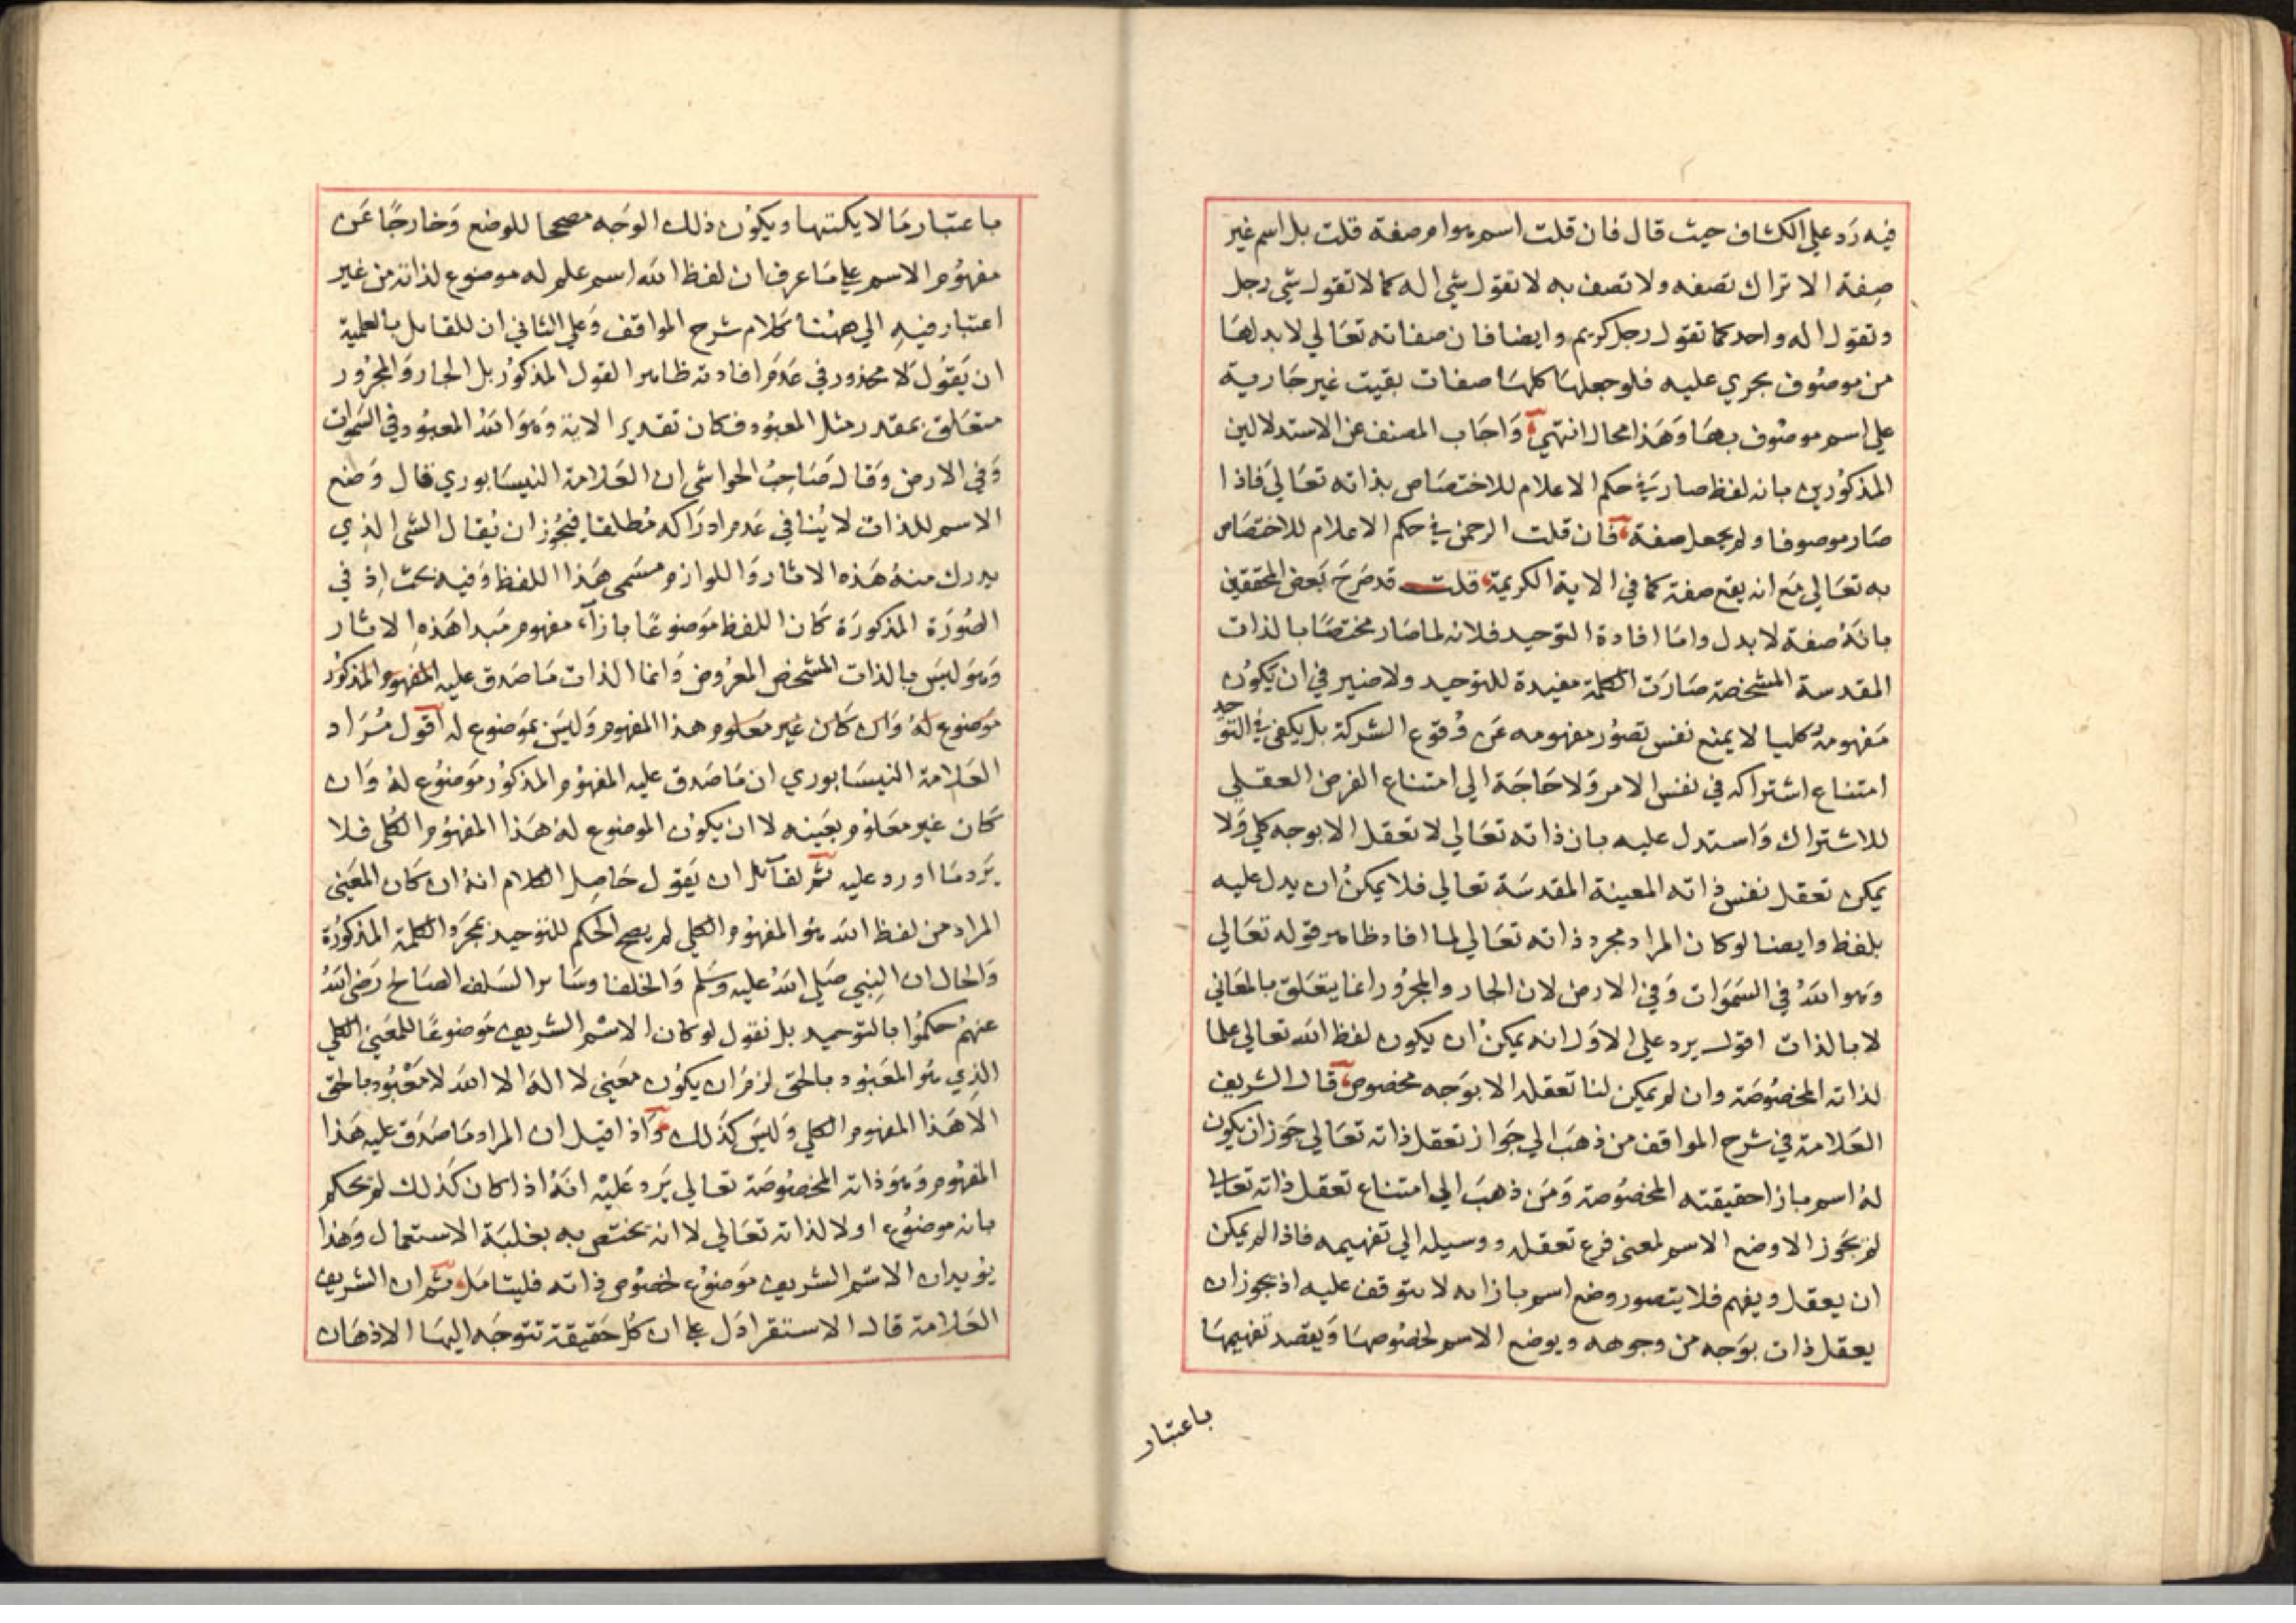 فيه رد علي الكشاف حيث قال فان قلت اسم هو ام صفة قلت بل اسم غير
صفة الا تراك تصفه ولا تصف به لا تقول شي اله كما لا تقول شي رجل
وتقول اله واحد كما تقول رجل كريم وايضا فان صفاته تعالي لا بد لها
من موصوف يجري عليه فلو جعلها كلها صفات بقيت غير جارية
علي اسم موصوف بها وهذا محال انتهي واجاب المصنف عن الاستدلالين
المذكورين بانه لفظ صار في حكم الاعلام للاختصاص بذاته تعالي فاذا
صار موصوفا ولم يجعل صفة فان قلت الرحمن في حكم الاعلام للاختصاص
به تعالي مع انه يقع صفة كما في الاية الكريمة قلت قد صرح بعض المحققين
بانه صفة لا بدل واما افادة التوحيد فلانه لما صار مختصا بالذات
المقدسة المشخصة صارت الكلمة مفيدة للتوحيد ولا ضير في ان يكون
مفهومه كليا لا يمنع نفس تصور مفهومه عن وقوع الشركة بل يكفي في التوحيد
امتناع اشتراكه في نفس الامر ولا حاجة الي امتناع الفرض العقلي
للاشتراك واستدل عليه بان ذاته تعالي لا تعقل الا بوجه كلي ولا
يمكن تعقل نفس ذاته المعينة المقدسة تعالي فلا يمكن ان يدل عليه
بلفظ وايضا لو كان المراد مجرد ذاته تعالي لما افاد ظاهر قوله تعالي
وهو الله في السموات وفي الارض لان الجار والمجرور انما يتعلق بالمعاني
لا بالذات اقول يرد علي الاول انه يمكن ان يكون لفظ الله تعالي علما
لذاته المخصوصة وان لم يمكن لنا تعقله الا بوجه مخصوص قال الشريف
العلامة في شرح المواقف من ذهب الي جواز تعقل ذاته تعالي جوز ان يكون
له اسم بازا حقيقته المخصوصة ومن ذهب الي امتناع تعقل ذاته تعالي
لم يجوز الا وضع الاسم لمعني فرع تعقله ووسيله الي تفهيمه فاذا لم يمكن
ان يعقل ويفهم فلا يتصور وضع اسم بازائه لا يتوقف عليه اذ يجوز ان
يعقل ذات بوجه من وجوهه ويوضع الاسم لخصوصها ويقصد تفهيمها
باعتبار
باعتبار ما لا يكتنهها ويكون ذلك الوجه مصححا للوضع وخارجا عن
مفهوم الاسم علي ما عرف ان لفظ الله اسم علم له موضوع لذاته من غير
اعتبار فيه الي ههنا كلام شرح المواقف وعلي الثاني ان للقايل بالعلمية
ان يقول لا محذور في عدم افادته ظاهر القول المذكور بل الجار والمجرور
متعلق بمقدر مثل المعبود فكان تقدير الاية وهو الله المعبود في السموات
وفي الارض وقال صاحب الحواشي ان العلامة النيسابوري قال وضع
الاسم للذات لا ينافي عدم ادراكه مطلقا فيجوز ان يقال الشي الذي
يدرك منه هذه الاثار واللوازم مسمي هذا اللفظ وفيه بحث اذ في
الصورة المذكورة كان اللفظ موضوعا بازاء مفهوم مبدا هذه الاثار
وهو ليس بالذات المشخص المعروض وانما الذات ما صدق عليه المفهوم المذكور
موضوع له وان كان غير معلوم هذا المفهوم وليس بموضوع له اقول مراد
العلامة النيسابوري ان ما صدق عليه المفهوم المذكور موضوع له وان
كان غير معلوم بعينه لا ان يكون الموضوع له هذا المفهوم الكلي فلا
يرد ما اورد عليه ثم لقائل ان يقول حاصل الكلام انه ان كان المعني
المراد من لفظ الله هو المفهوم الكلي لم يصح الحكم للتوحيد بمجرد الكلمة المذكورة
والحال ان النبي صلي الله عليه وسلم والخلفا وسائر السلف الصالح رضي الله
عنهم حكموا بالتوحيد بل نقول لو كان الاسم الشريف موضوعا للمعني الكلي
الذي هو المعبود بالحق لزم ان يكون معني لا اله الا الله لا معبود بالحق
الا هذا المفهوم الكلي وليس كذلك واذا قيل ان المراد ما صدق عليه هذا
المفهوم وهو ذاته المخصوصة تعالي يرد عليه انه اذا كان كذلك لم يحكم
بانه موضوع اولا لذاته تعالي لا انه يختص به بغلبة الاستعمال وهذا
يؤيد ان الاسم الشريف موضوع لخصوص ذاته فليتامل ثم ان الشريف
العلامة قال الاستقرا دل علي ان كل حقيقة تتوجه اليها الاذهان